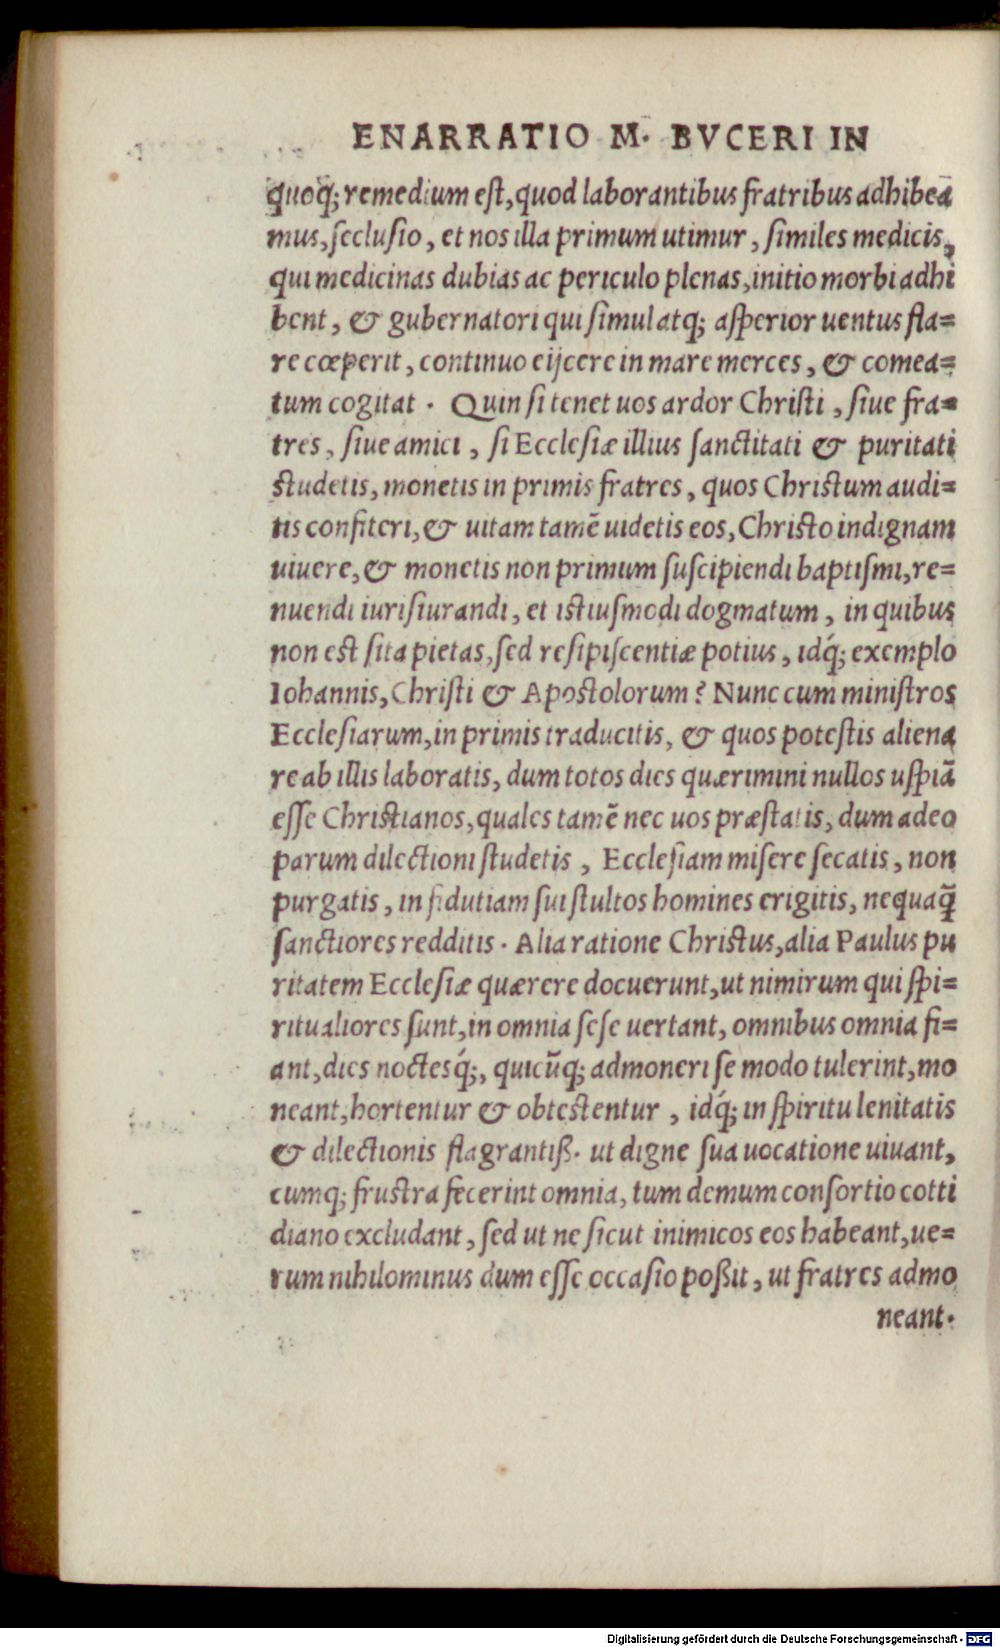 ENARRATIO M. BVCERI IN
quoq́; remedium eſt, quod laborantibus fratribus adhibeā
mus, ſecluſio, et nos illa primum utimur, ſimiles medicis,
qui medicinas dubias ac periculo plenas, initio morbi adhi
bent, & gubernatori qui ſimulatq; aſperior uentus fla=
re cœperit, continuo eijcere in mare merces, & comea=
tum cogitat. Quin ſi tenet uos ardor Chriſti, ſiue fra=
tres, ſiue amici, ſi Eccleſiæ illius ſanctitati & puritati
ſtudetis, monetis in primis fratres, quos Chriſtum audi=
tis confiteri, & uitam tamē uidetis eos, Chriſto indignam
uiuere, & monetis non primum ſuſcipiendi baptiſmi, re=
nuendi iuriſiurandi, et iſtiuſmodi dogmatum, in quibus
non eſt ſita pietas, ſed reſipiſcentiæ potius, idq́; exemplo
Iohannis, Chriſti & Apoſtolorum? Nunc cum miniſtros
Eccleſiarum, in primis traducitis, & quos poteſtis aliena
re ab illis laboratis, dum totos dies quærimini nullos uſpiā
eſſe Chriſtianos, quales tamē nec uos præſtatis, dum adeo
parum dilectioni ſtudetis, Eccleſiam miſere ſecatis, non
purgatis, in fidutiam ſui ſtultos homines erigitis, nequaq̃
ſanctiores redditis. Alia ratione Chriſtus, alia Paulus pu
ritatem Eccleſiæ quærere docuerunt, ut nimirum qui ſpi=
ritualiores ſunt, in omnia ſeſe uertant, omnibus omnia fi=
ant, dies noctesq́;, quicūq; admoneri ſe modo tulerint, mo
neant, hortentur & obteſtentur, idq́; in ſpiritu lenitatis
& dilectionis flagrantiß. ut digne ſua uocatione uiuant,
cumq; fruſtra fecerint omnia, tum demum conſortio cotti
diano excludant, ſed ut ne ſicut inimicos eos habeant, ue=
rum nihilominus dum eſſe occaſio poßit, ut fratres admo
neant.
Digitalisierung gefördert durch die Deutsche Forschungsgemeinschaft - DFG